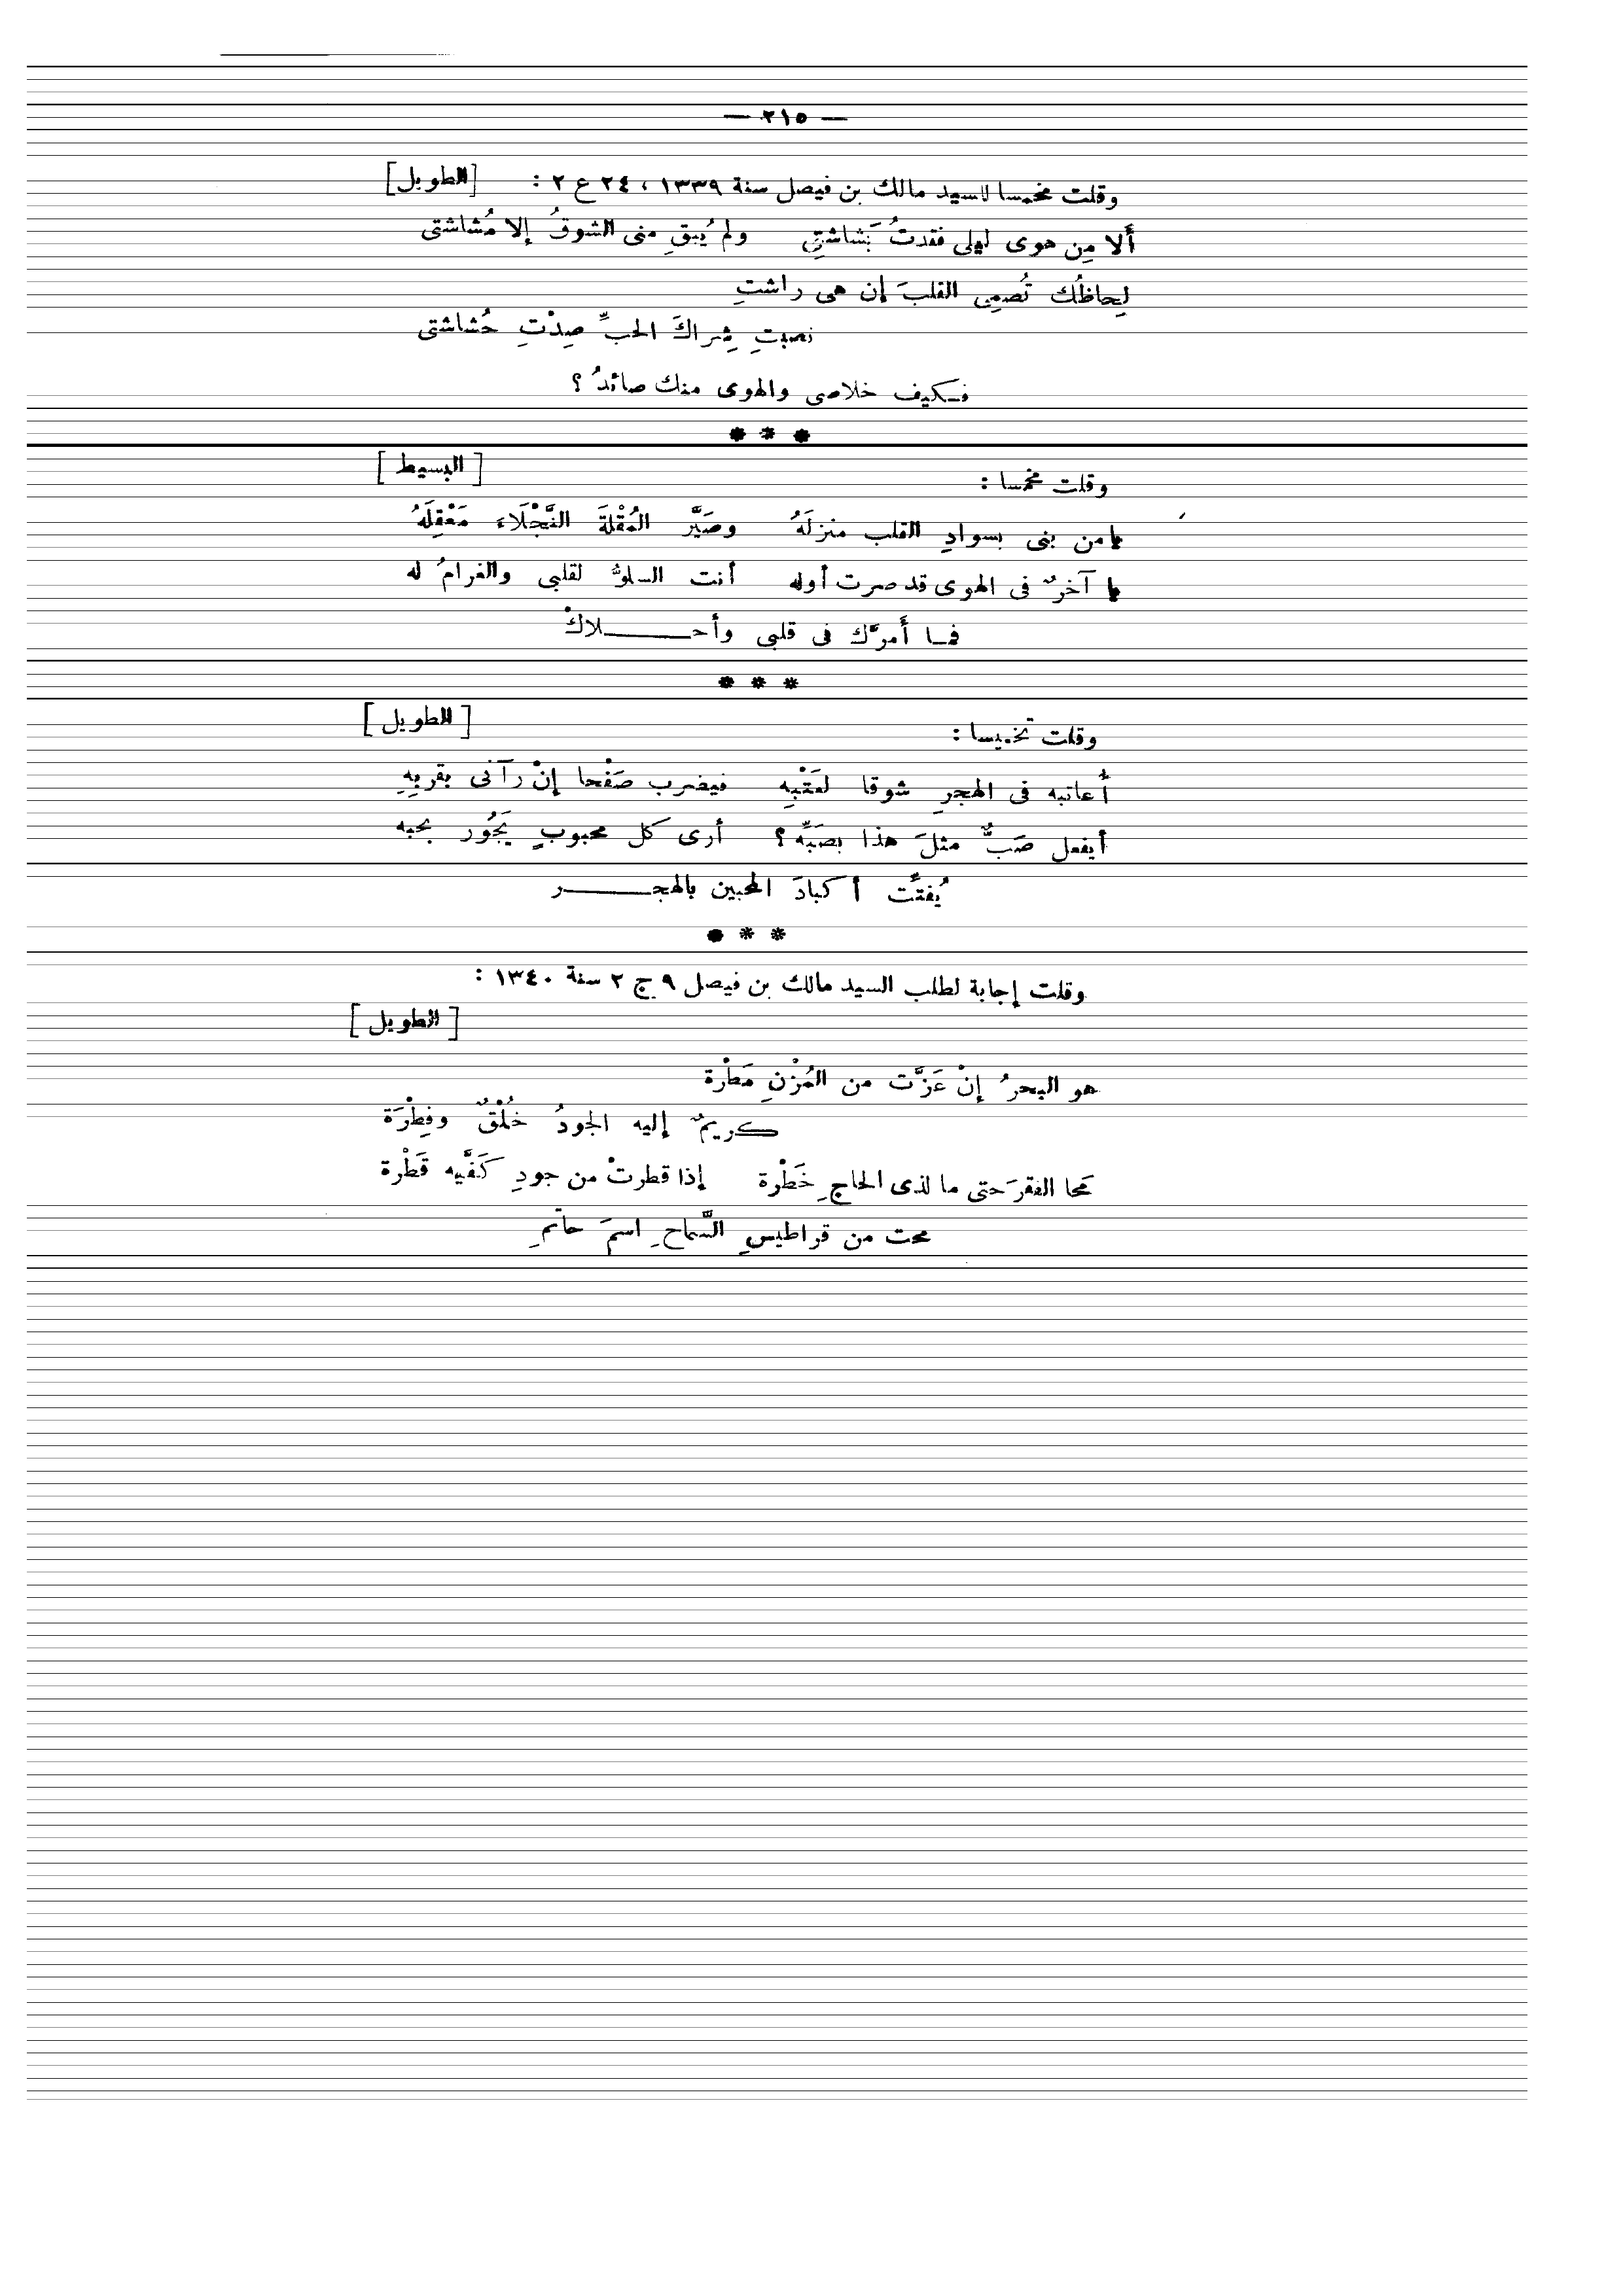 — ٢١٥ —
وقلت مخمسا للسيد مالك بن فيصل سنة ١٣٣٩ ، ٢٤ ع ٢ : [الطويل]
أَلا مِن هوى ليلى فقدتُ بَشاشتِى ولم يُبقِ منى الشوقُ إلا مُشاشتى
لِحاظُك تُصمِى القلبَ إن هى راشتِ
نصبتِ شِراكَ الحبِّ صِدْتِ حُشاشتى
فكيف خلاصى والهوى منك صائدُ ؟
* * *
وقلت مخمسا : [ البسيط ]
يا من بنى بسوادِ القلب منزلَهُ وصَيَّر المُقْلةَ النَّجْلَاءَ مَعْقِلَهُ
يا آخرٌ فى الهوى قد صرت أوله أنت السلوُّ لقلبى والغرامُ له
فما أَمرَّك فى قلبى وأحـــــلاكْ
* * *
وقلت تخميسا : [ الطويل ]
أُعاتبه فى الهجرِ شوقا لعَتْبِه فيضرب صَفْحا إنْ رآنى بقربِهِ
أيفعل صَبٌّ مثلَ هذا بصَبِّه ؟ أرى كل محبوبٍ يَجُور بحبه
يُفتِّت أكبادَ المحبين بالهجـــــر
* * *
وقلت إجابة لطلب السيد مالك بن فيصل ٩ ج ٢ سنة ١٣٤٠ :
[ الطويل ]
هو البحرُ إنْ عَزَّت من المُزْنِ مَطْرة
كريمٌ إليه الجودُ خُلْقٌ وفِطْرَة
محا الفقرَ حتى ما لذى الحاجِ خَطْرة إذا قطرتْ من جودِ كَفَّيه قَطْرة
محت من قراطيسِ السَّماحِ اسمَ حاتمِ